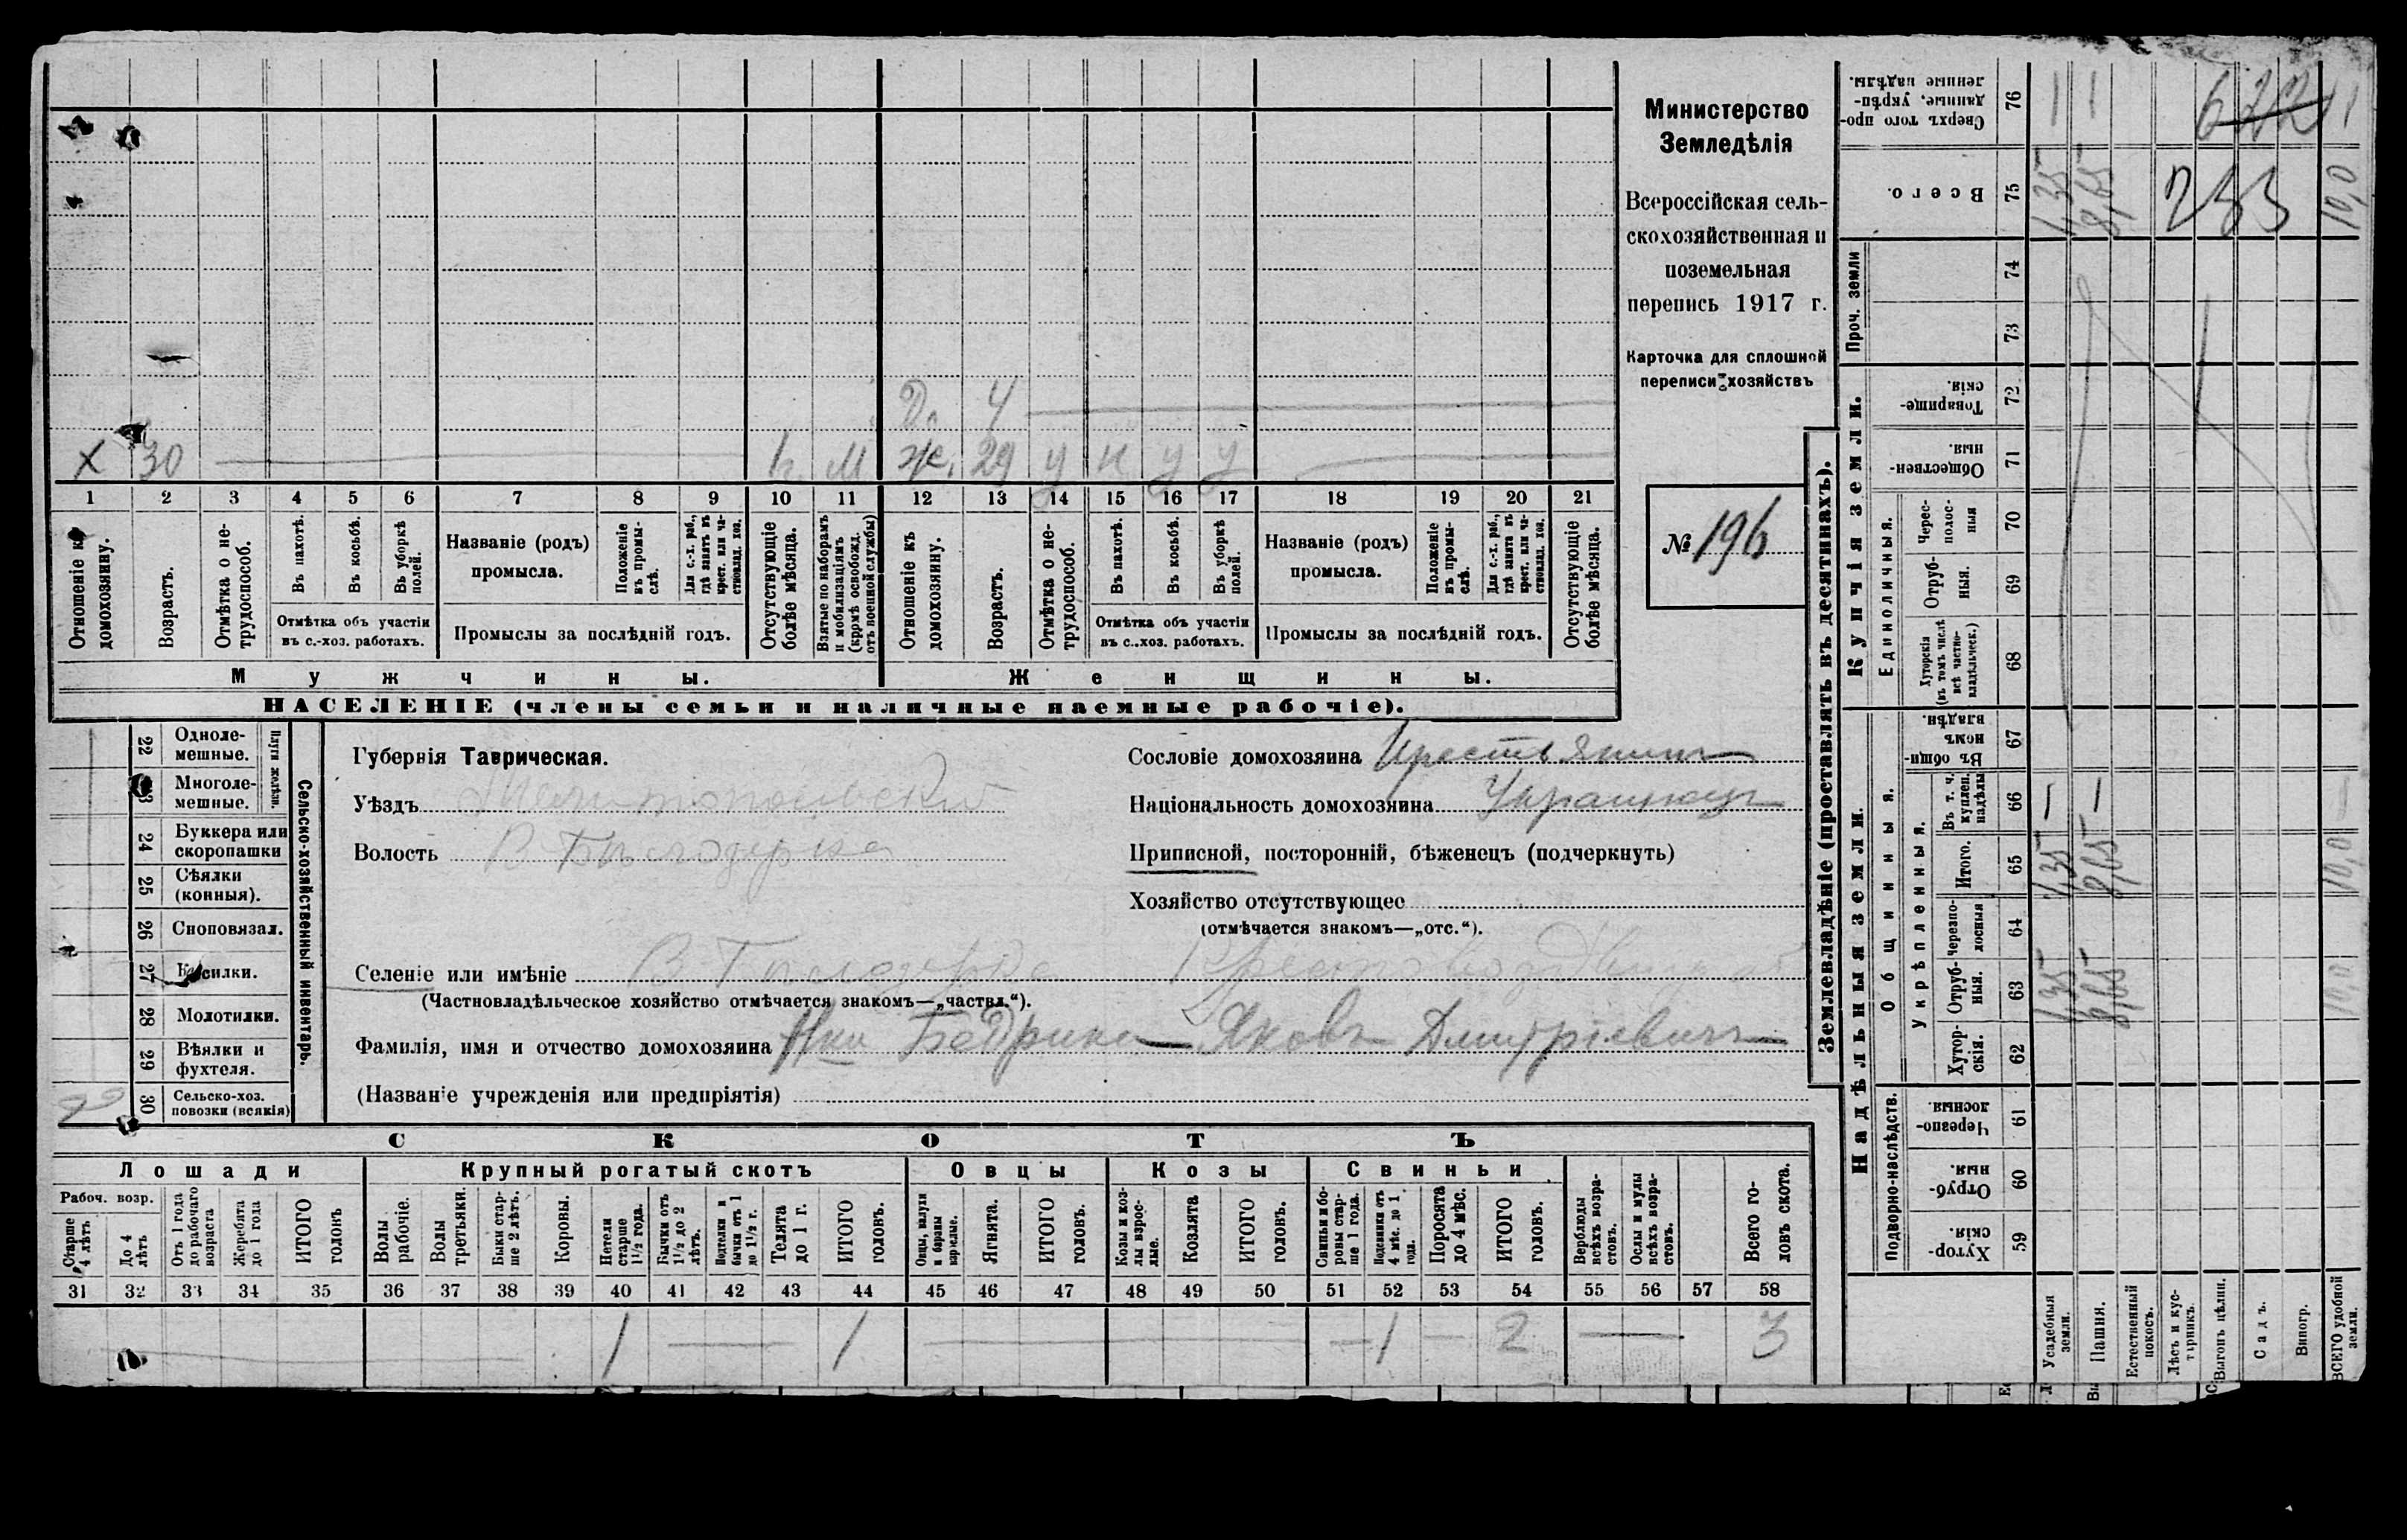 Х 30 М Д. 4
ж. 29 у н у у
1 2 3 4 5 6 7 8 9 10 11 12 13 14 15 16 17 18 19 20 21
Отношеніе къ домохозяину.
Возрастъ.
Отмѣтка о нетрудоспособ.
Въ пахотѣ.
Въ косьбѣ.
Въ уборкѣ полей.
Отмѣтка объ участіи въ с.-хоз. работахъ.
Названіе (родъ) промысла.
Положеніе въ промыслѣ.
Для с.-х. раб., гдѣ занятъ въ крест. или частновлад. хоз.
Промыслы за послѣдній годъ.
Отсутствующіе болѣе мѣсяца.
Взятые по наборамъ и мобилизаціямъ (кромѣ освобожд. отъ военной службы)
Отношеніе къ домохозяину.
Возрастъ.
Отмѣтка о нетрудоспособ.
Въ пахотѣ.
Въ косьбѣ.
Въ уборкѣ полей.
Отмѣтка объ участіи въ с..хоз. работахъ.
Названіе (родъ) промысла.
Положеніе въ промыслѣ.
Для с.-х. раб., гдѣ занята въ крест. или частновлад. хоз.
Промыслы за послѣдній годъ.
Отсутствующіе болѣе мѣсяца.
Мужчины.
Женщины.
НАСЕЛЕНІЕ (члены семьи и наличные наемные рабочіе).
Министерство
Земледѣлія
Всероссійская сель-
скохозяйственная и
поземельная
перепись 1917 г.
Карточка для сплошной
переписи хозяйствъ
№ 196
22 Однолемешные.
23 Многолемешные.
Плуги желѣзн.
24 Буккера или скоропашки
25 Сѣялки (конныя).
26 Сноповязал.
27 Косилки.
28 Молотилки.
29 Вѣялки и фухтеля.
30 Сельско-хоз. повозки (всякія)
Сельско-хозяйственный инвентарь.
Губернія Таврическая.
Уѣздъ Мелитопольскій
Волость В-Бѣлозерка
Селеніе или имѣніе В-Бѣлозерка
(Частновладѣльческое хозяйство отмѣчается знакомъ—„частвл.“).
Фамилія, имя и отчество домохозяина Яковъ Дмитріевичъ
(Названіе учрежденія или предпріятія)
Сословіе домохозяина Крестьянинъ
Національность домохозяина Украинецъ
Приписной, посторонній, бѣженецъ (подчеркнуть)
Хозяйство отсутствующее
(отмѣчается знакомъ—„отс.“).
СКОТЪ
Лошади
Крупный рогатый скотъ
Овцы
Козы
Свиньи
Рабоч. возр.
Старше 4 лѣтъ
До 4 лѣтъ
Отъ 1 года до рабочаго возраста
Жеребята до 1 года
ИТОГО головъ
Волы рабочіе.
Волы третьяки.
Быки старше 2 лѣтъ.
Коровы.
Нетели старше 1½ года.
Бычки отъ 1½ до 2 лѣтъ.
Подтелки и бычки отъ 1 до 1½ г.
Телята до 1 г.
ИТОГО головъ.
Овцы, валухи и бараны взрослые.
Ягнята.
ИТОГО головъ.
Козы и козлы взрослые.
Козлята
ИТОГО головъ.
Свиньи и боровы старше 1 года.
Подсвинки отъ 4 мѣс. до 1 года.
Поросята до 4 мѣс.
ИТОГО головъ.
Верблюды всѣхъ возрастовъ.
Ослы и мулы всѣхъ возрастовъ.
Всего головъ скота.
31 32 33 34 35 36 37 38 39 40 41 42 43 44 45 46 47 48 49 50 51 52 53 54 55 56 57 58
1 — 1 — — 1 — 2 — 3
Землевладѣніе (проставлять въ десятинахъ).
Купчія земли.
Надѣльныя земли.
Сверхъ того проданные, укрѣпленные надѣлы. 76
Всего. 75
Проч. земли
74
73
Товарищескія. 72
Общественныя 71
Единоличныя.
Чересполосныя 70
Отрубныя. 69
Хуторскія (въ томъ числѣ всѣ частновладѣльческ.) 68
Общинныя.
Въ общинномъ владѣн. 67
Укрѣпленныя.
Въ т. ч. куплен. надѣлы 66
Итого. 65
Черезполосныя 64
Отрубныя. 63
Хуторскія. 62
Подворно-наслѣдств.
Черезполосныя. 61
Отрубныя. 60
Хуторскія. 59
Усадебныя земли.
Пашня.
Естественный покосъ.
Лѣсъ и кустарникъ.
Выгонъ цѣлин.
Садъ.
Виногр.
ВСЕГО удобной земли.
1,35 8,65 10,0
1,35 8,65 10,0
1,35 8,65 10,0